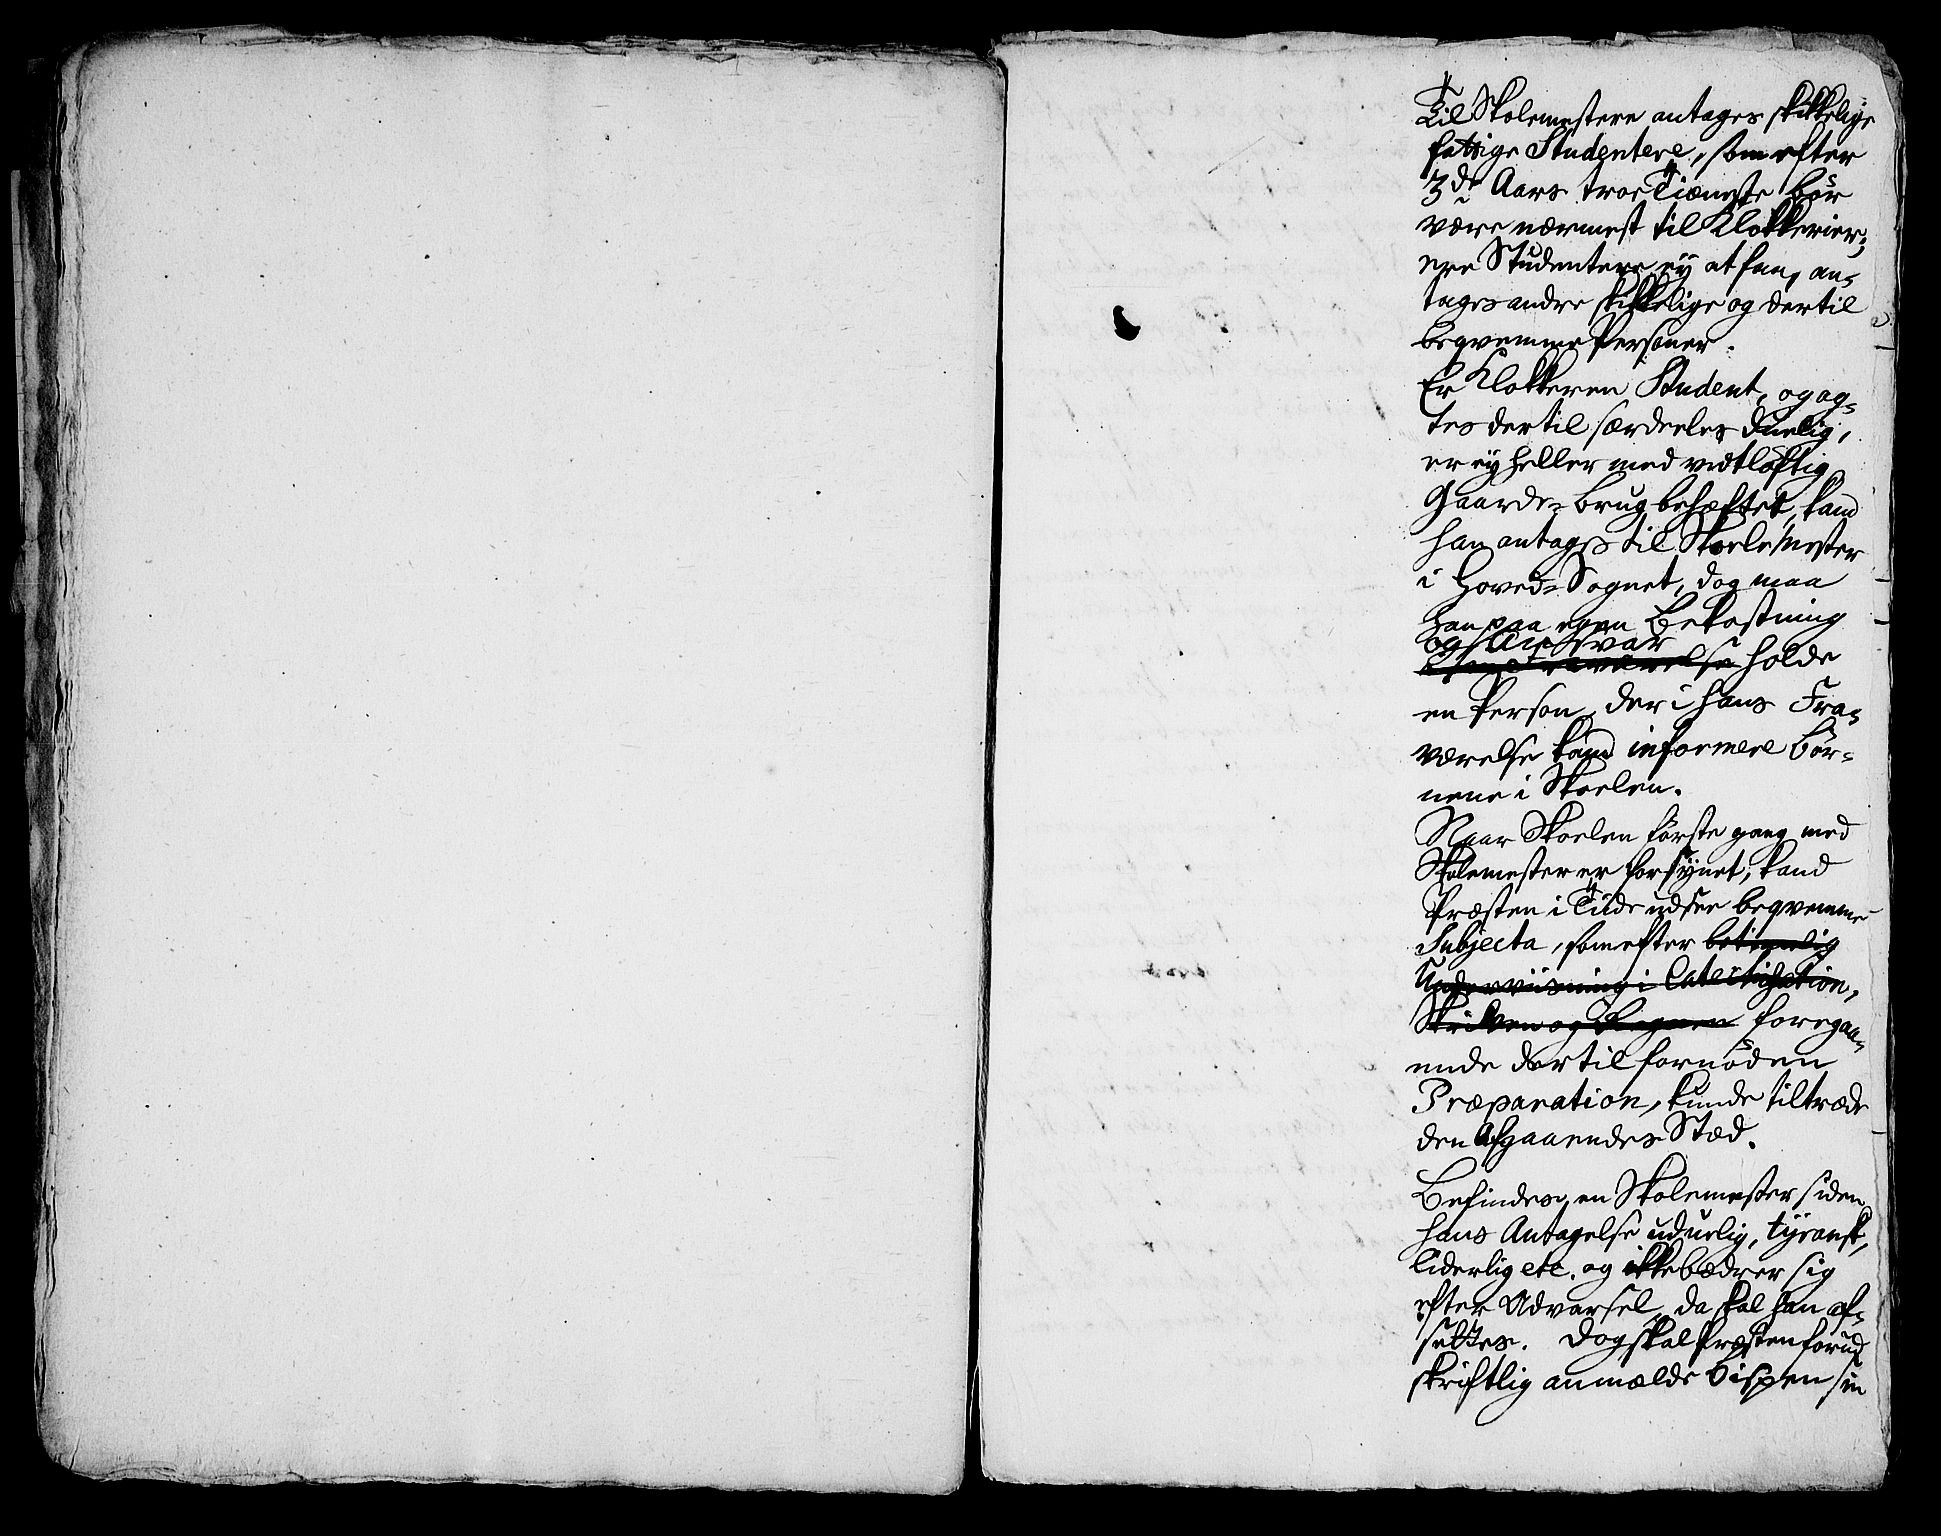 Til Skolemestere antages skikkelige
fattige Studentere, som efter
3de Aars troe Tieneste bør
være nærmest til Klokkerier;
ere Studentere ey at faae, an-
tages andre skikkelige og dertil
beqvemme Personer.
Er Klokkeren Student, og ag-
tes dertil særdeeles duelig,
er ey heller med vidtløftig
Gaards-brug behæftet, kand
han antages til Skoele Mester
i Hoved-Sognet, dog maa
han paa egen Bekostning
og Ansvar
holde
en Person, der i hans Fra-
værelse kand informere Bør-
nene i Skoelen.
Naar Skoelen første gang med
Skolemester er forsynet, kand
Præsten i Tiide udsee beqvemme
Subjecta, som efter betimelig
Underviisning i Catechisation,
Skriven og Regnen foregaa-
ende dertil fornøden
Præparation, kunde tiltræde
den Afgaaendes Stæd.
Befindes en Skolemester siden
hans Antagelse uduelig, tyransk,
liderlig etc. og ikke bædrer sig
efter Advarsel, da skal han af-
settes. Dog skal Præsten forud
skriftlig anmælde Bispen sin